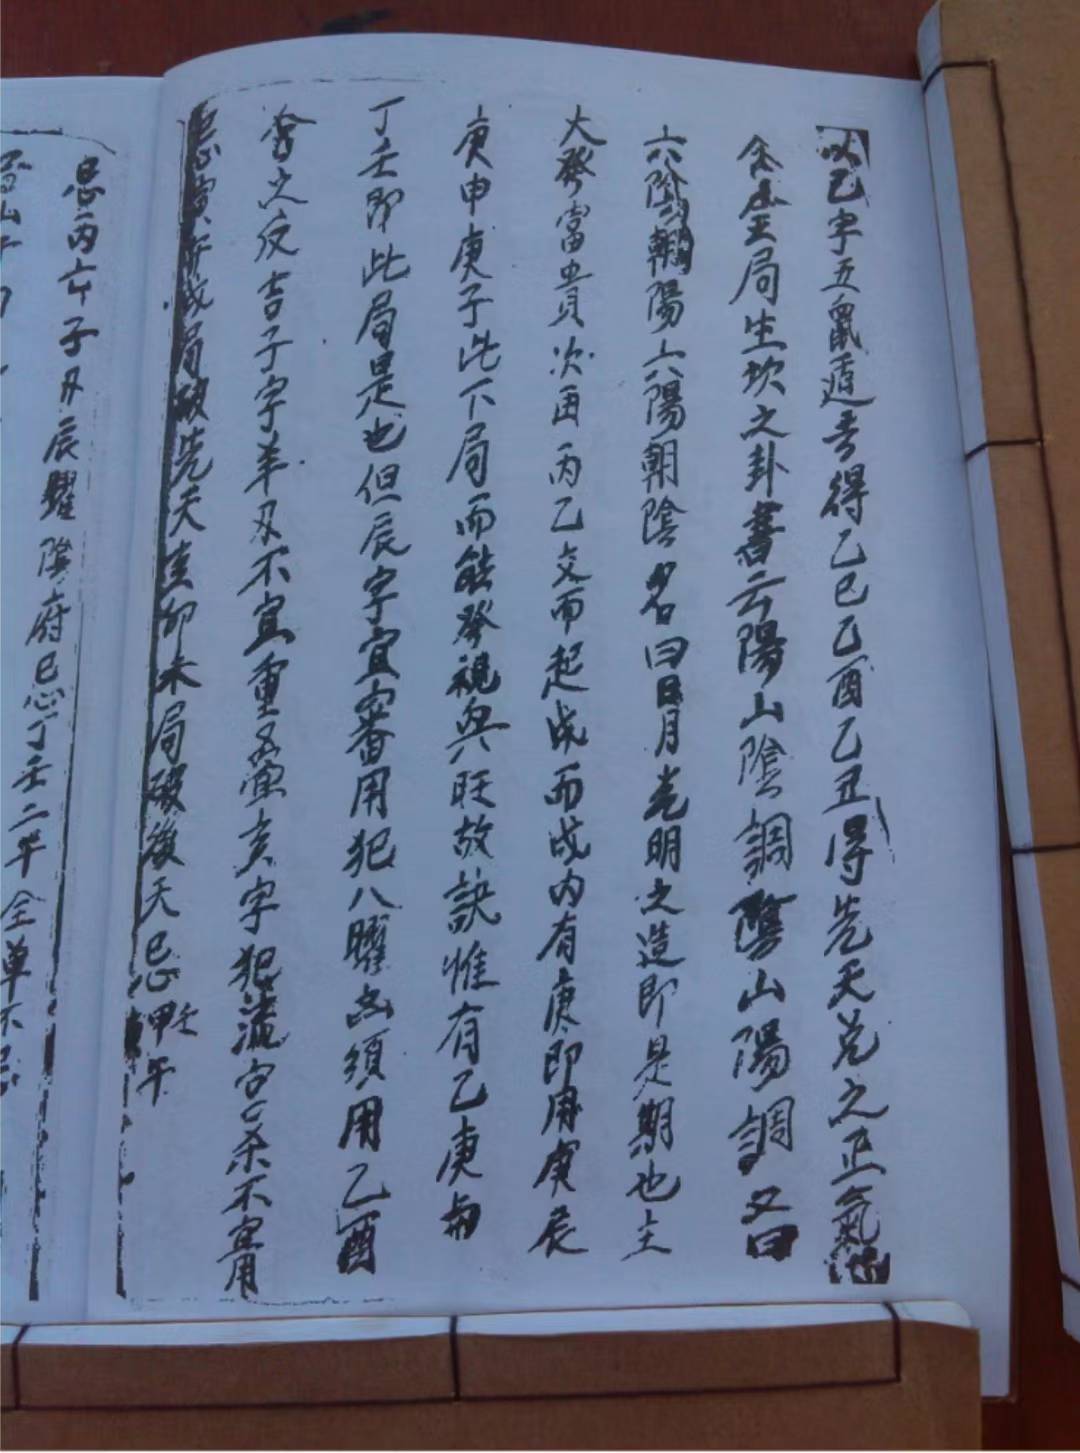 以己字五鼠遁去得乙巳乙酉乙丑得先天兌之正氣
金局生坎之卦書云陽山陰調陰山陽調又曰
六陰朝陽六陽朝陰名曰日月光明之造即是期也主
大發富貴次因丙乙交而起戊而戊内有庚即用庚辰
庚申庚子此下局而能發視興旺故訣惟有乙庚与
丁壬即此局是也但辰字宜審用犯八曜凶須用乙酉
合之反吉子字羊刃不宜重疊亥字犯字殺不宜用
忌寅午戌局破先天亥卯未局破後天忌甲午
壬
忌丙 子刃辰曜陰府忌丁壬二干全單不忌